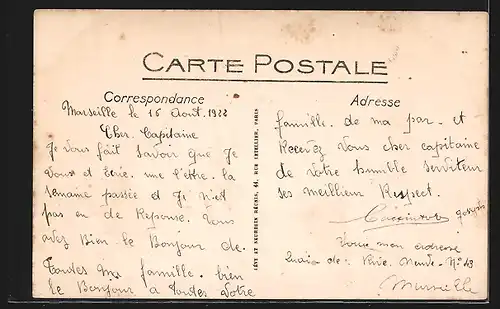 CARTE POSTALE
Correspondance
Marseille le 16 Aout 1922
Cher. Capitaine
Je vous fait savoir que Je
vous et une l'etre. la
semaine passée et Je n'et
pas eu de Reponse. Vous
avez Bien le Bonjour de.
Toutes ma famille. bien
le Bonjour a toutes Votre
LÉVY ET NEURDEIN RÉUNIS, 44, RUE LETELLIER, PARIS
Adresse
famille. de ma par. et
Recevez Vous cher capitaine
de Votre humble serviteur
ses meillieur Respect.
Joseph
Vous mon adresse
Quais de. Rive. Neuve. No 43
Marseille